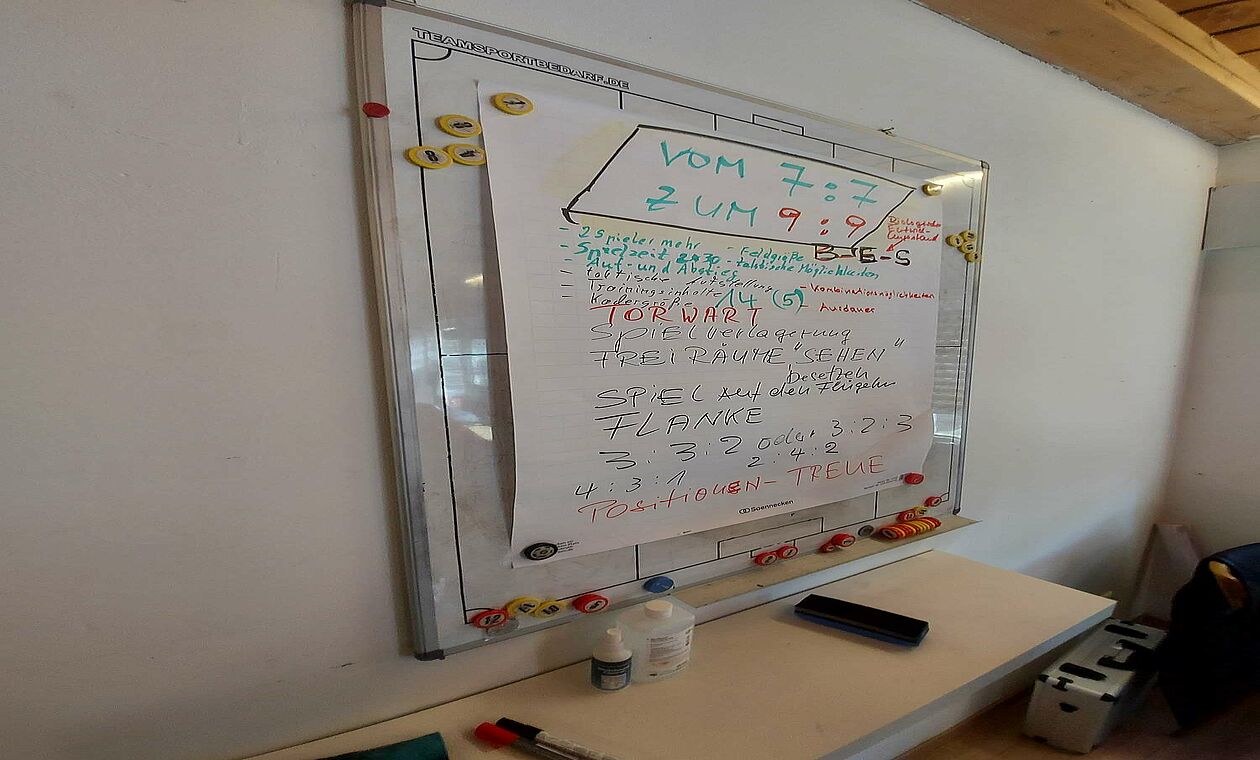 TEAMSPORTBEDARF.DE
VOM 7:7
ZUM 9:9
- 2 Spieler mehr - Feldgröße B-E-S
- Spielzeit - taktische Möglichkeiten
- Auf- und Abstieg
- taktische Aufstellung - Kombinationsmöglichkeiten
- Trainingsinhalte
- Kadergröße 14 (5) - Ausdauer
TORWART
SPIELverlagerung
FREIRÄUME "SEHEN"
besetzen
SPIEL Auf den Flügeln
FLANKE
3:3:2 oder 3:2:3
4:3:1 2:4:2
POSITIONEN-TREUE
Soennecken
12